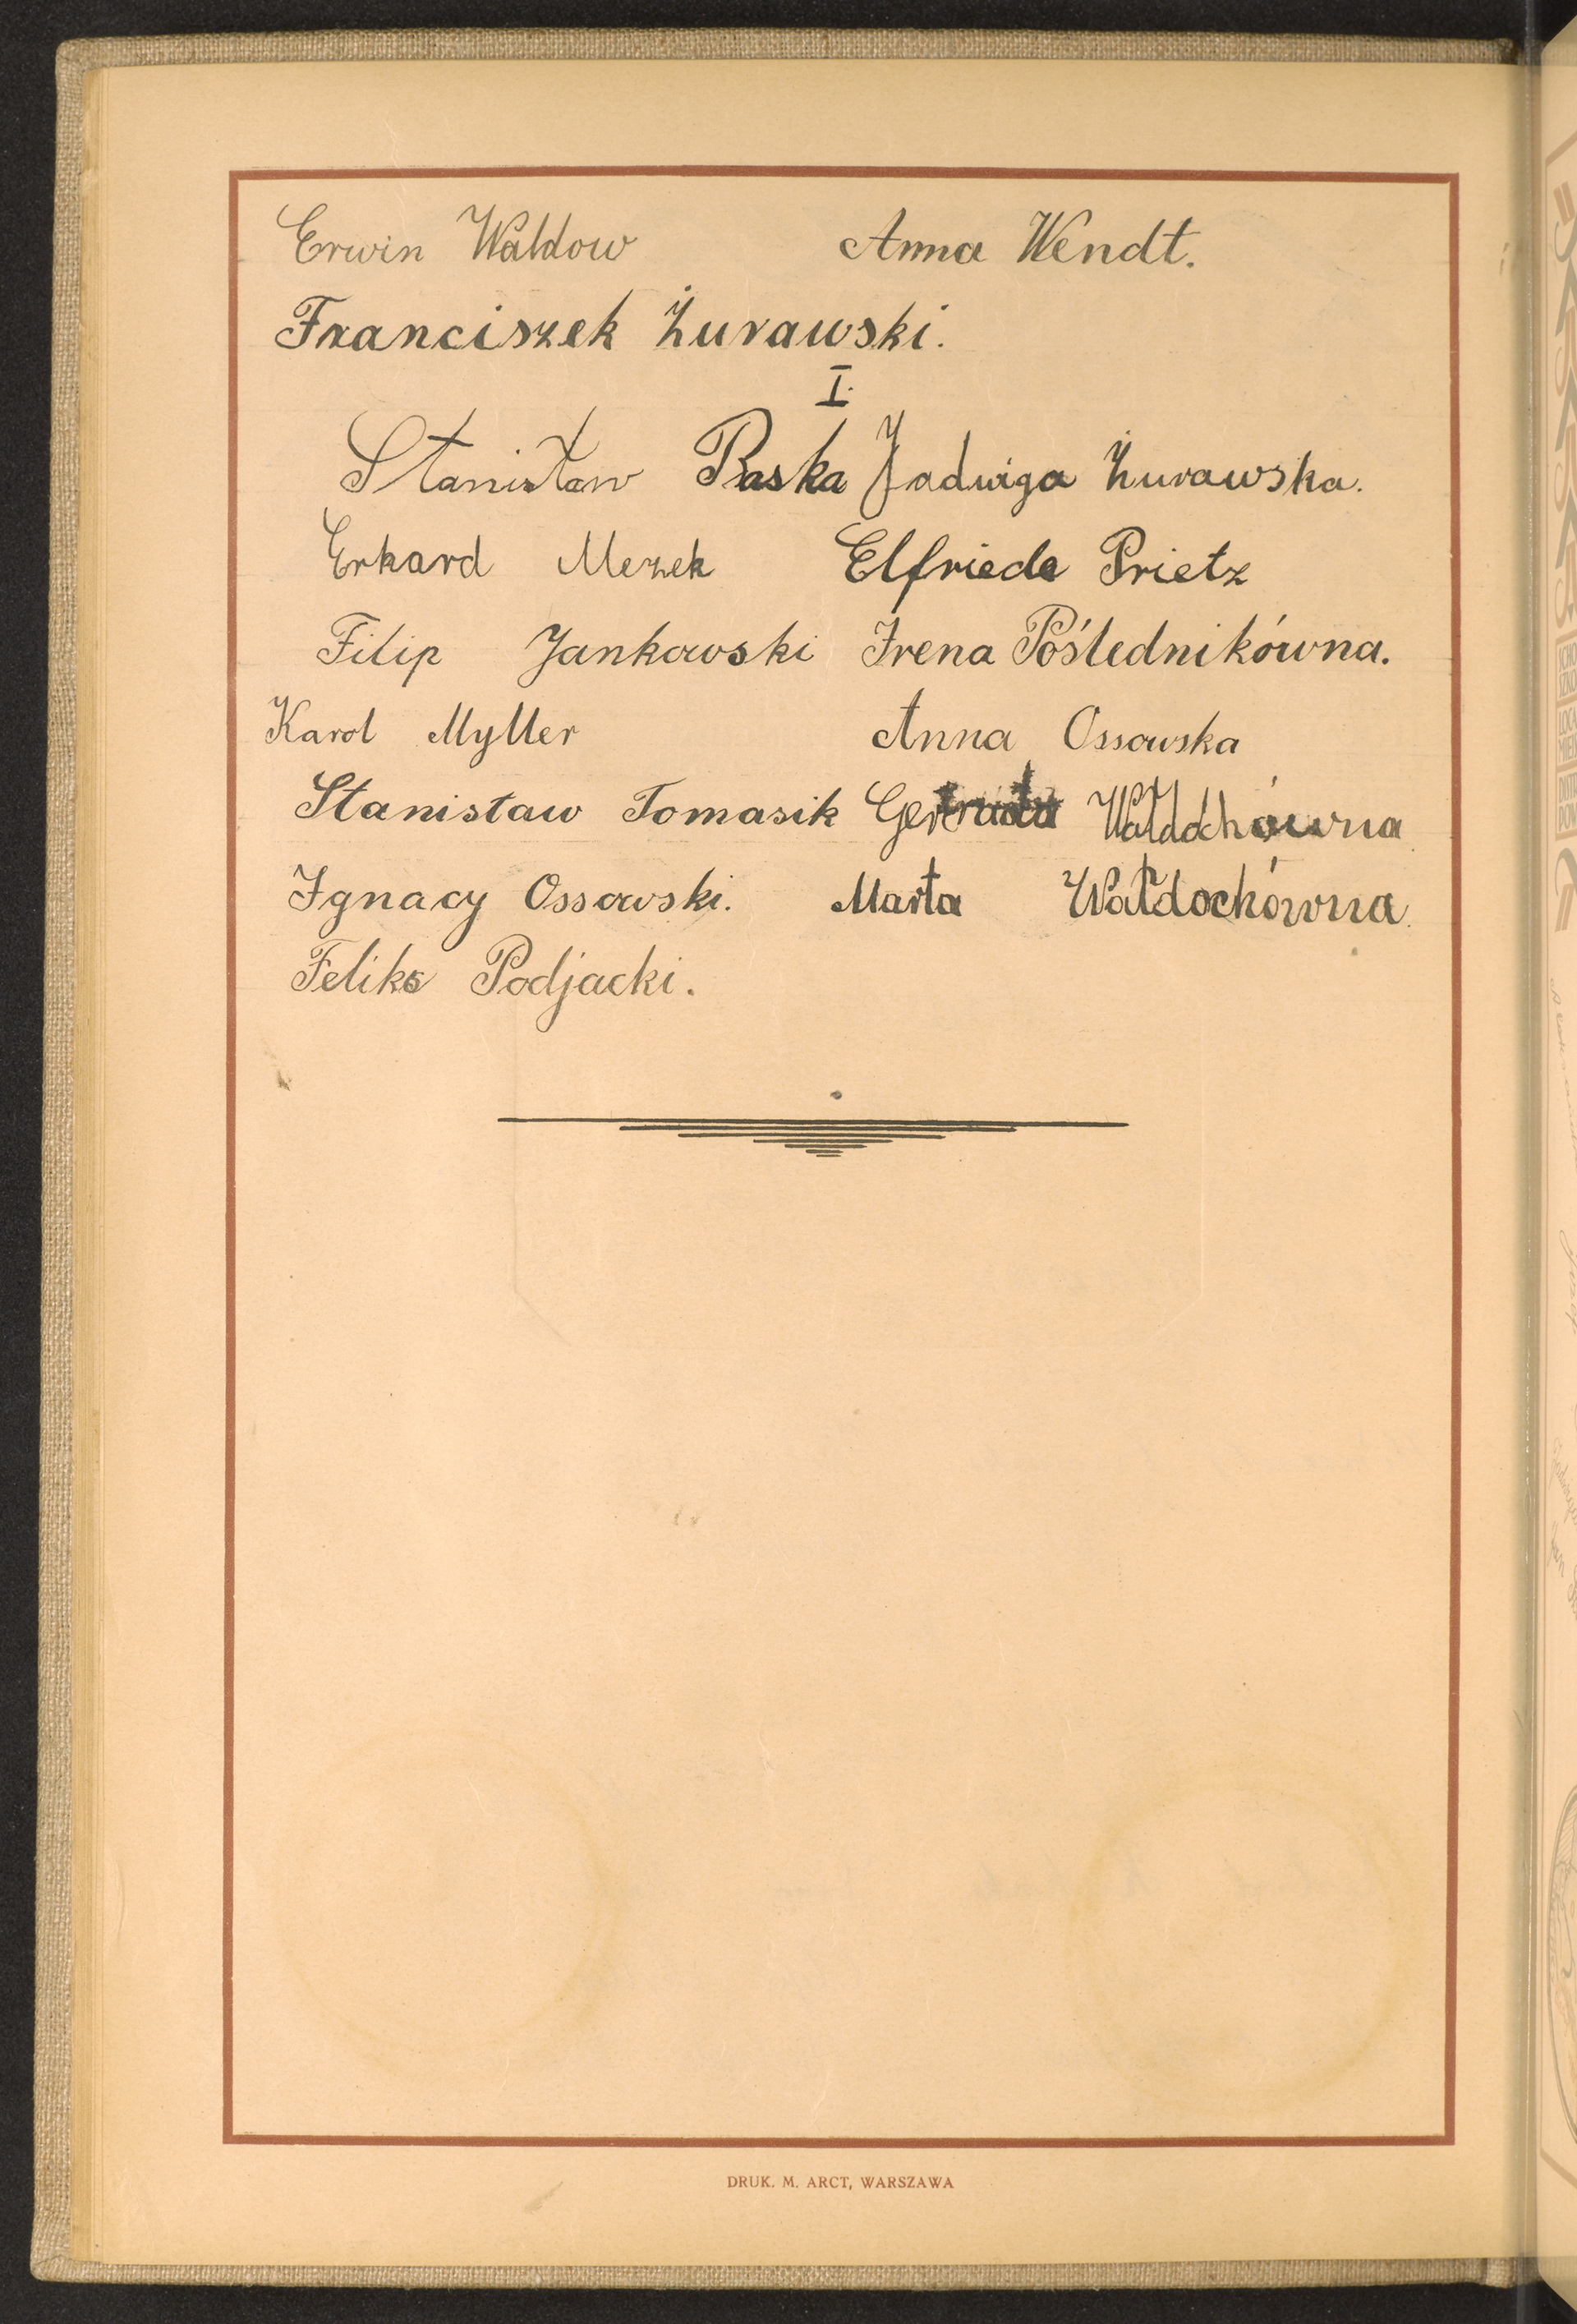 Erwin Waldow Anna Wendt.
Franciszek Żurawski.
I.
Stanisław Raska Jadwiga Żurawska.
Erhard Mezek Elfriede Prietz
Filip Jankowski Irena Pośłednikówna.
Karol Myller Anna Ossowska
Stanisław Tomasik Gertruda Wałdochówna
Ignacy Ossowski. Marta Wałdochówna
Feliks Podjacki.
DRUK. M. ARCT, WARSZAWA